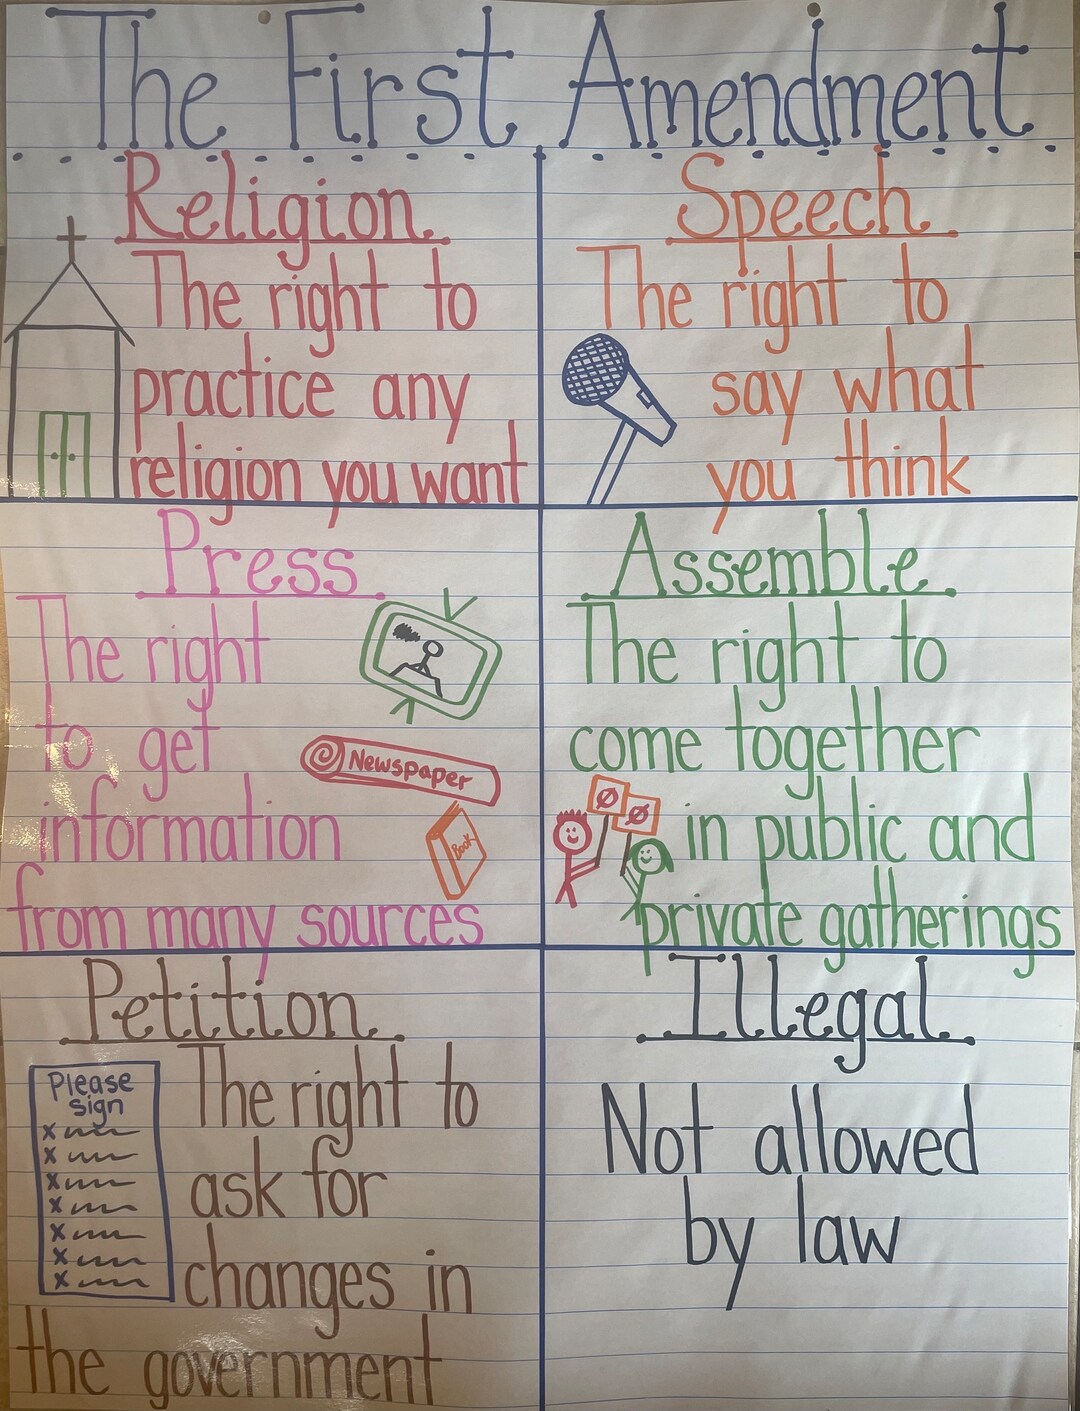 The First Amendment
Religion
The right to
practice any
religion you want
Speech
The right to
say what
you think
Press
The right
to get
information
from many sources
Newspaper
Book
Assemble
The right to
come together
in public and
private gatherings
Petition
The right to
ask for
changes in
the government
Please
sign
x
x
x
x
x
x
x
Illegal
Not allowed
by law